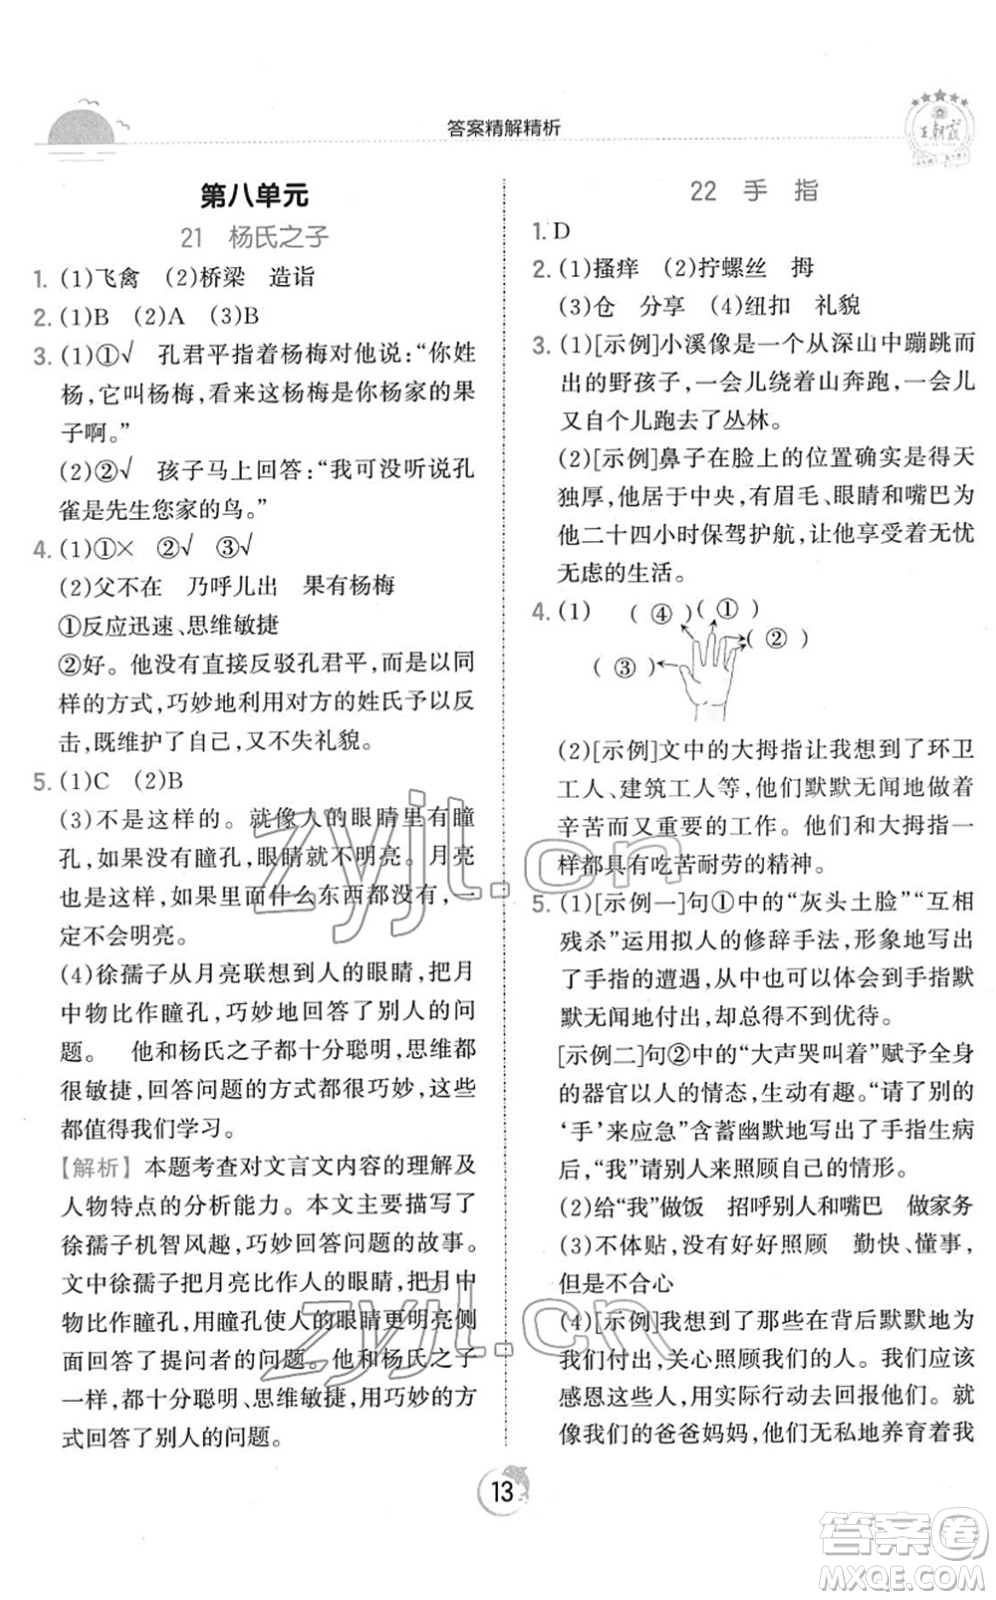 答案精解精析
王朝霞
第八单元
21 杨氏之子
1. (1)飞禽 (2)桥梁 造诣
2. (1)B (2)A (3)B
3. (1)①√ 孔君平指着杨梅对他说：“你姓
杨，它叫杨梅，看来这杨梅是你杨家的果
子啊。”
(2)②√ 孩子马上回答：“我可没听说孔
雀是先生您家的鸟。”
4. (1)①× ②√ ③√
(2)父不在 乃呼儿出 果有杨梅
①反应迅速、思维敏捷
②好。他没有直接反驳孔君平，而是以同
样的方式，巧妙地利用对方的姓氏予以反
击，既维护了自己，又不失礼貌。
5. (1)C (2)B
(3)不是这样的。就像人的眼睛里有瞳
孔，如果没有瞳孔，眼睛就不明亮。月亮
也是这样，如果里面什么东西都没有，一
定不会明亮。
(4)徐孺子从月亮联想到人的眼睛，把月
中物比作瞳孔，巧妙地回答了别人的问
题。 他和杨氏之子都十分聪明，思维都
很敏捷，回答问题的方式都很巧妙，这些
都值得我们学习。
【解析】本题考查对文言文内容的理解及
人物特点的分析能力。本文主要描写了
徐孺子机智风趣，巧妙回答问题的故事。
文中徐孺子把月亮比作人的眼睛，把月中
物比作瞳孔，用瞳孔使人的眼睛更明亮侧
面回答了提问者的问题。他和杨氏之子
一样，都十分聪明、思维敏捷，用巧妙的方
式回答了别人的问题。
22 手 指
1. D
2. (1)搔痒 (2)拧螺丝 拇
(3)仓 分享 (4)纽扣 礼貌
3. (1)[示例]小溪像是一个从深山中蹦跳而
出的野孩子，一会儿绕着山奔跑，一会儿
又自个儿跑去了丛林。
(2)[示例]鼻子在脸上的位置确实是得天
独厚，他居于中央，有眉毛、眼睛和嘴巴为
他二十四小时保驾护航，让他享受着无忧
无虑的生活。
4. (1) (④) (①)
(②)
(③)
(2)[示例]文中的大拇指让我想到了环卫
工人、建筑工人等，他们默默无闻地做着
辛苦而又重要的工作。他们和大拇指一
样都具有吃苦耐劳的精神。
5. (1)[示例一]句①中的“灰头土脸”“互相
残杀”运用拟人的修辞手法，形象地写出
了手指的遭遇，从中可以体会到手指默
默无闻地付出，却总得不到优待。
[示例二]句②中的“大声哭叫着”赋予全身
的器官以人的情态，生动有趣。“请了别的
‘手’来应急”含蓄幽默地写出了手指生病
后，“我”请别人来照顾自己的情形。
(2)给“我”做饭 招呼别人和嘴巴 做家务
(3)不体贴，没有好好照顾 勤快、懂事，
但是不合心
(4)[示例]我想到了那些在背后默默地为
我们付出，关心照顾我们的人。我们应该
感恩这些人，用实际行动去回报他们。就
像我们的爸爸妈妈，他们无私地养育着我
13
zyjl.cn
zyjl.cn
答案卷
MXQE.COM